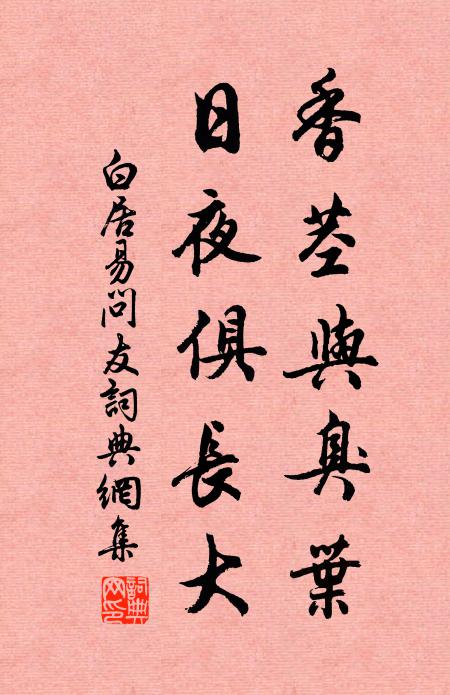 香茎與臭葉
日夜俱長大
白居易問友詞典網集
詞典網印